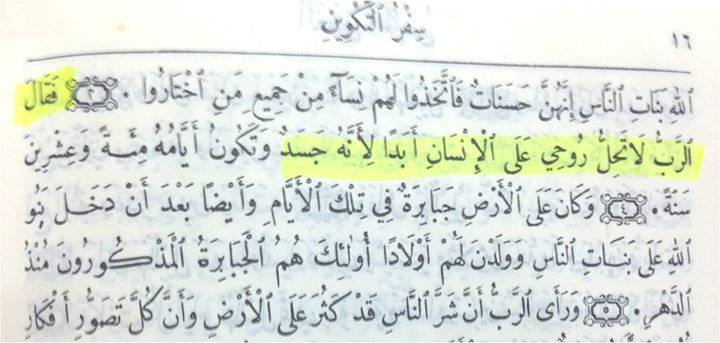 ١٦ سِفْرُ ٱلتَّكْوِينِ
ٱللهِ بَنَاتِ ٱلنَّاسِ إِنَّهُنَّ حَسَنَاتٌ فَٱتَّخَذُوا لَهُمْ نِسَآءً مِنْ جَمِيعِ مَنِ ٱخْتَارُوا . ٣ فَقَالَ
ٱلرَّبُّ لَا تَحِلُّ رُوحِي عَلَى ٱلْإِنْسَانِ أَبَدًا لِأَنَّهُ جَسَدٌ وَتَكُونُ أَيَّامُهُ مِئَةً وَعِشْرِينَ
سَنَةً . ٤ وَكَانَ عَلَى ٱلْأَرْضِ جَبَابِرَةٌ فِي تِلْكَ ٱلْأَيَّامِ وَأَيْضًا بَعْدَ أَنْ دَخَلَ بَنُو
ٱللهِ عَلَى بَنَاتِ ٱلنَّاسِ وَوَلَدْنَ لَهُمْ أَوْلَادًا أُولٰئِكَ هُمُ ٱلْجَبَابِرَةُ ٱلْمَذْكُورُونَ مُنْذُ
ٱلدَّهْرِ . ٥ وَرَأَى ٱلرَّبُّ أَنَّ شَرَّ ٱلنَّاسِ قَدْ كَثُرَ عَلَى ٱلْأَرْضِ وَأَنَّ كُلَّ تَصَوُّرِ أَفْكَارِ